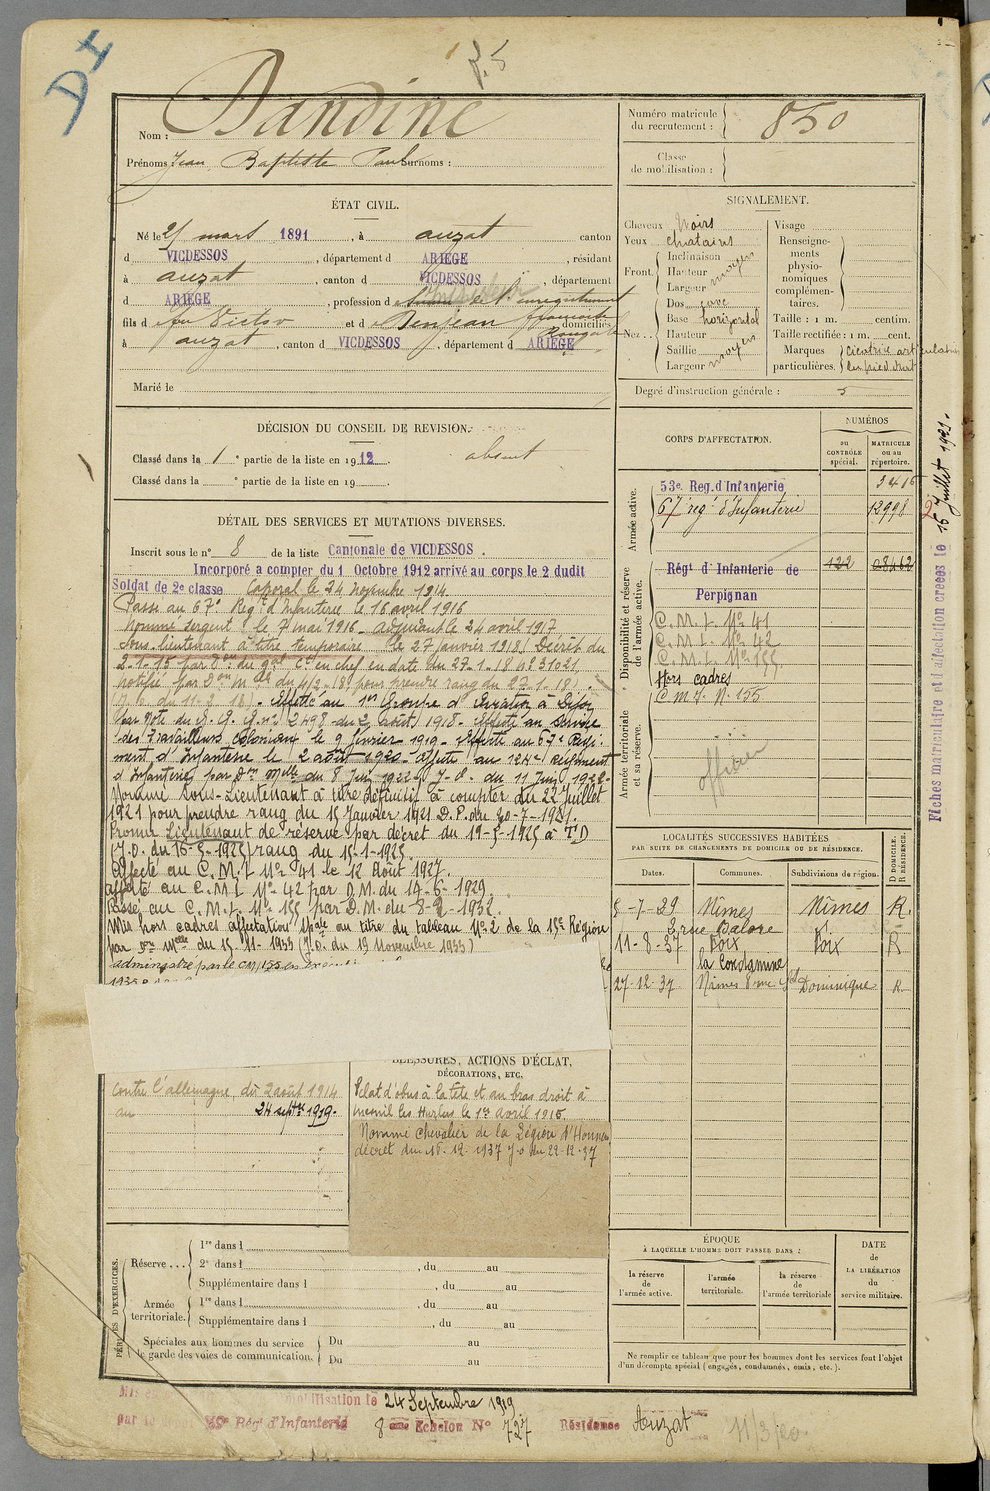 DI
Nom : Dandine
Prénoms Jean Baptiste Paul Surnoms :
Numéro matricule du recrutement : 850
Classe de mobilisation :
ÉTAT CIVIL.
Né le 21 mars 1891, à auzat canton
d VICDESSOS, département d ARIÈGE, résidant
à auzat, canton d VICDESSOS, département
d ARIÈGE, profession d de l'enregistrement
fils d feu Victor et d Denjean françoise domiciliés
à auzat, canton d VICDESSOS, département d ARIÈGE
Marié le
SIGNALEMENT.
Cheveux Noirs
Yeux chatains
Front. Inclinaison
Hauteur
Largeur moyen
Nez.. Dos cave
Base horizontal
Hauteur
Saillie
Largeur moyen
Visage
Renseignements physionomiques complémentaires.
Taille : 1 m. centim.
Taille rectifiée : 1 m. cent.
Marques particulières. cicatrice articulaire
Degré d'instruction générale : 5
DÉCISION DU CONSEIL DE REVISION.
Classé dans la 1 e partie de la liste en 1912. absent
Classé dans la e partie de la liste en 19 .
CORPS D'AFFECTATION.
NUMÉROS
au CONTRÔLE spécial.
MATRICULE ou au répertoire.
Armée active.
53e Reg. d'Infanterie
67e reg d'Infanterie 12998
Disponibilité et réserve de l'armée active.
Régt d'Infanterie de Perpignan 122
C.M.I. No 41
C.M.I. No 42
C.M.I. No 155
Hors cadres
C M I. N. 155
Armée territoriale et sa réserve.
officier
Fiches matriculaire et d'affectation creées le 16 Juillet 1921.
DÉTAIL DES SERVICES ET MUTATIONS DIVERSES.
Inscrit sous le no 8 de la liste Cantonale de VICDESSOS.
Incorporé a compter du 1 Octobre 1912 arrivé au corps le 2 dudit
Soldat de 2e classe Caporal le 24 novembre 1914.
Passé au 67e Régt d'Infanterie le 16 avril 1916
Nommé sergent le 7 mai 1916 adjudant le 24 avril 1917
Sous-lieutenant à titre temporaire le 27 janvier 1918 Décret du
2-1-15 par don du gal Ct en chef en date du 27-1-18 No 31021,
notifié par Don mlle du 4/2-18 pour prendre rang du 27-1-18
Affecté au 1er Groupe d'Aviation à Dijon
par Note du G.Q.G. no 2498 du 2 août 1918 - Affecté au Service
des Travailleurs coloniaux le 9 février 1919 - Affecté au 67e Régi-
ment d'Infanterie le 2 août 1920 - affecté au 124e Régiment
d'Infanterie par Don Mlle du 8 Juin 1922 J.O. du 11 Juin 1922-
Nommé Sous-Lieutenant à titre définitif à compter du 22 Juillet
1921 pour prendre rang du 15 Janvier 1921 D.P. du 20-7-1921.
Promu Lieutenant de réserve par décret du 19-5-1925 à T.D
(J.O. du 16-5-1925) rang du 15-1-1925.
affecté au C.M.I No 41 le 12 Août 1927.
affecté au C.M.I No 42 par D.M. du 14-6-1929.
Passé au C.M.I. No 155 par D.M. du 8-2-1932.
Mis hors cadres affectation spale au titre du tableau No 2 de la 15e Région
par Don Melle du 15-11-1933 (J.O. du 19 Novembre 1933)
administré par le CM 155 en
LOCALITÉS SUCCESSIVES HABITÉES
PAR SUITE DE CHANGEMENTS DE DOMICILE OU DE RÉSIDENCE.
Dates. Communes. Subdivisions de région. D DOMICILE. R RÉSIDENCE.
5-7-29 Nîmes Nîmes R
3 rue Balore
11-8-37 Foix Foix R
la Condamine
27-12-37 Nimes 8 rue St Dominique R
BLESSURES, ACTIONS D'ÉCLAT, DÉCORATIONS, ETC.
contre l'allemagne, du 2 août 1914
au 24 septbre 1919.
Eclat d'obus à la tête et au bras droit à
mesnil les Hurlus le 1er avril 1915
Nommé Chevalier de la Légion d'Honneur
décret du 16-12-1937 J.O du 22-12-37
PÉRIODES D'EXERCICES.
Réserve ... 1re dans l
2e dans l , du au
Supplémentaire dans l , du au
Armée territoriale. 1re dans l , du au
Supplémentaire dans l , du au
Spéciales aux hommes du service de garde des voies de communication. Du au
Du au
ÉPOQUE
À LAQUELLE L'HOMME DOIT PASSER DANS :
la réserve de l'armée active.
l'armée territoriale.
la réserve de l'armée territoriale
DATE de LA LIBÉRATION du service militaire.
Ne remplir ce tableau que pour les hommes dont les services font l'objet
d'un décompte spécial (engagés, condamnés, omis, etc.).
Mis en mobilisation le 24 Septembre 1919
par le Régt d'Infanterie 8eme Echelon No 727 Résidence Auzat 11/3/20